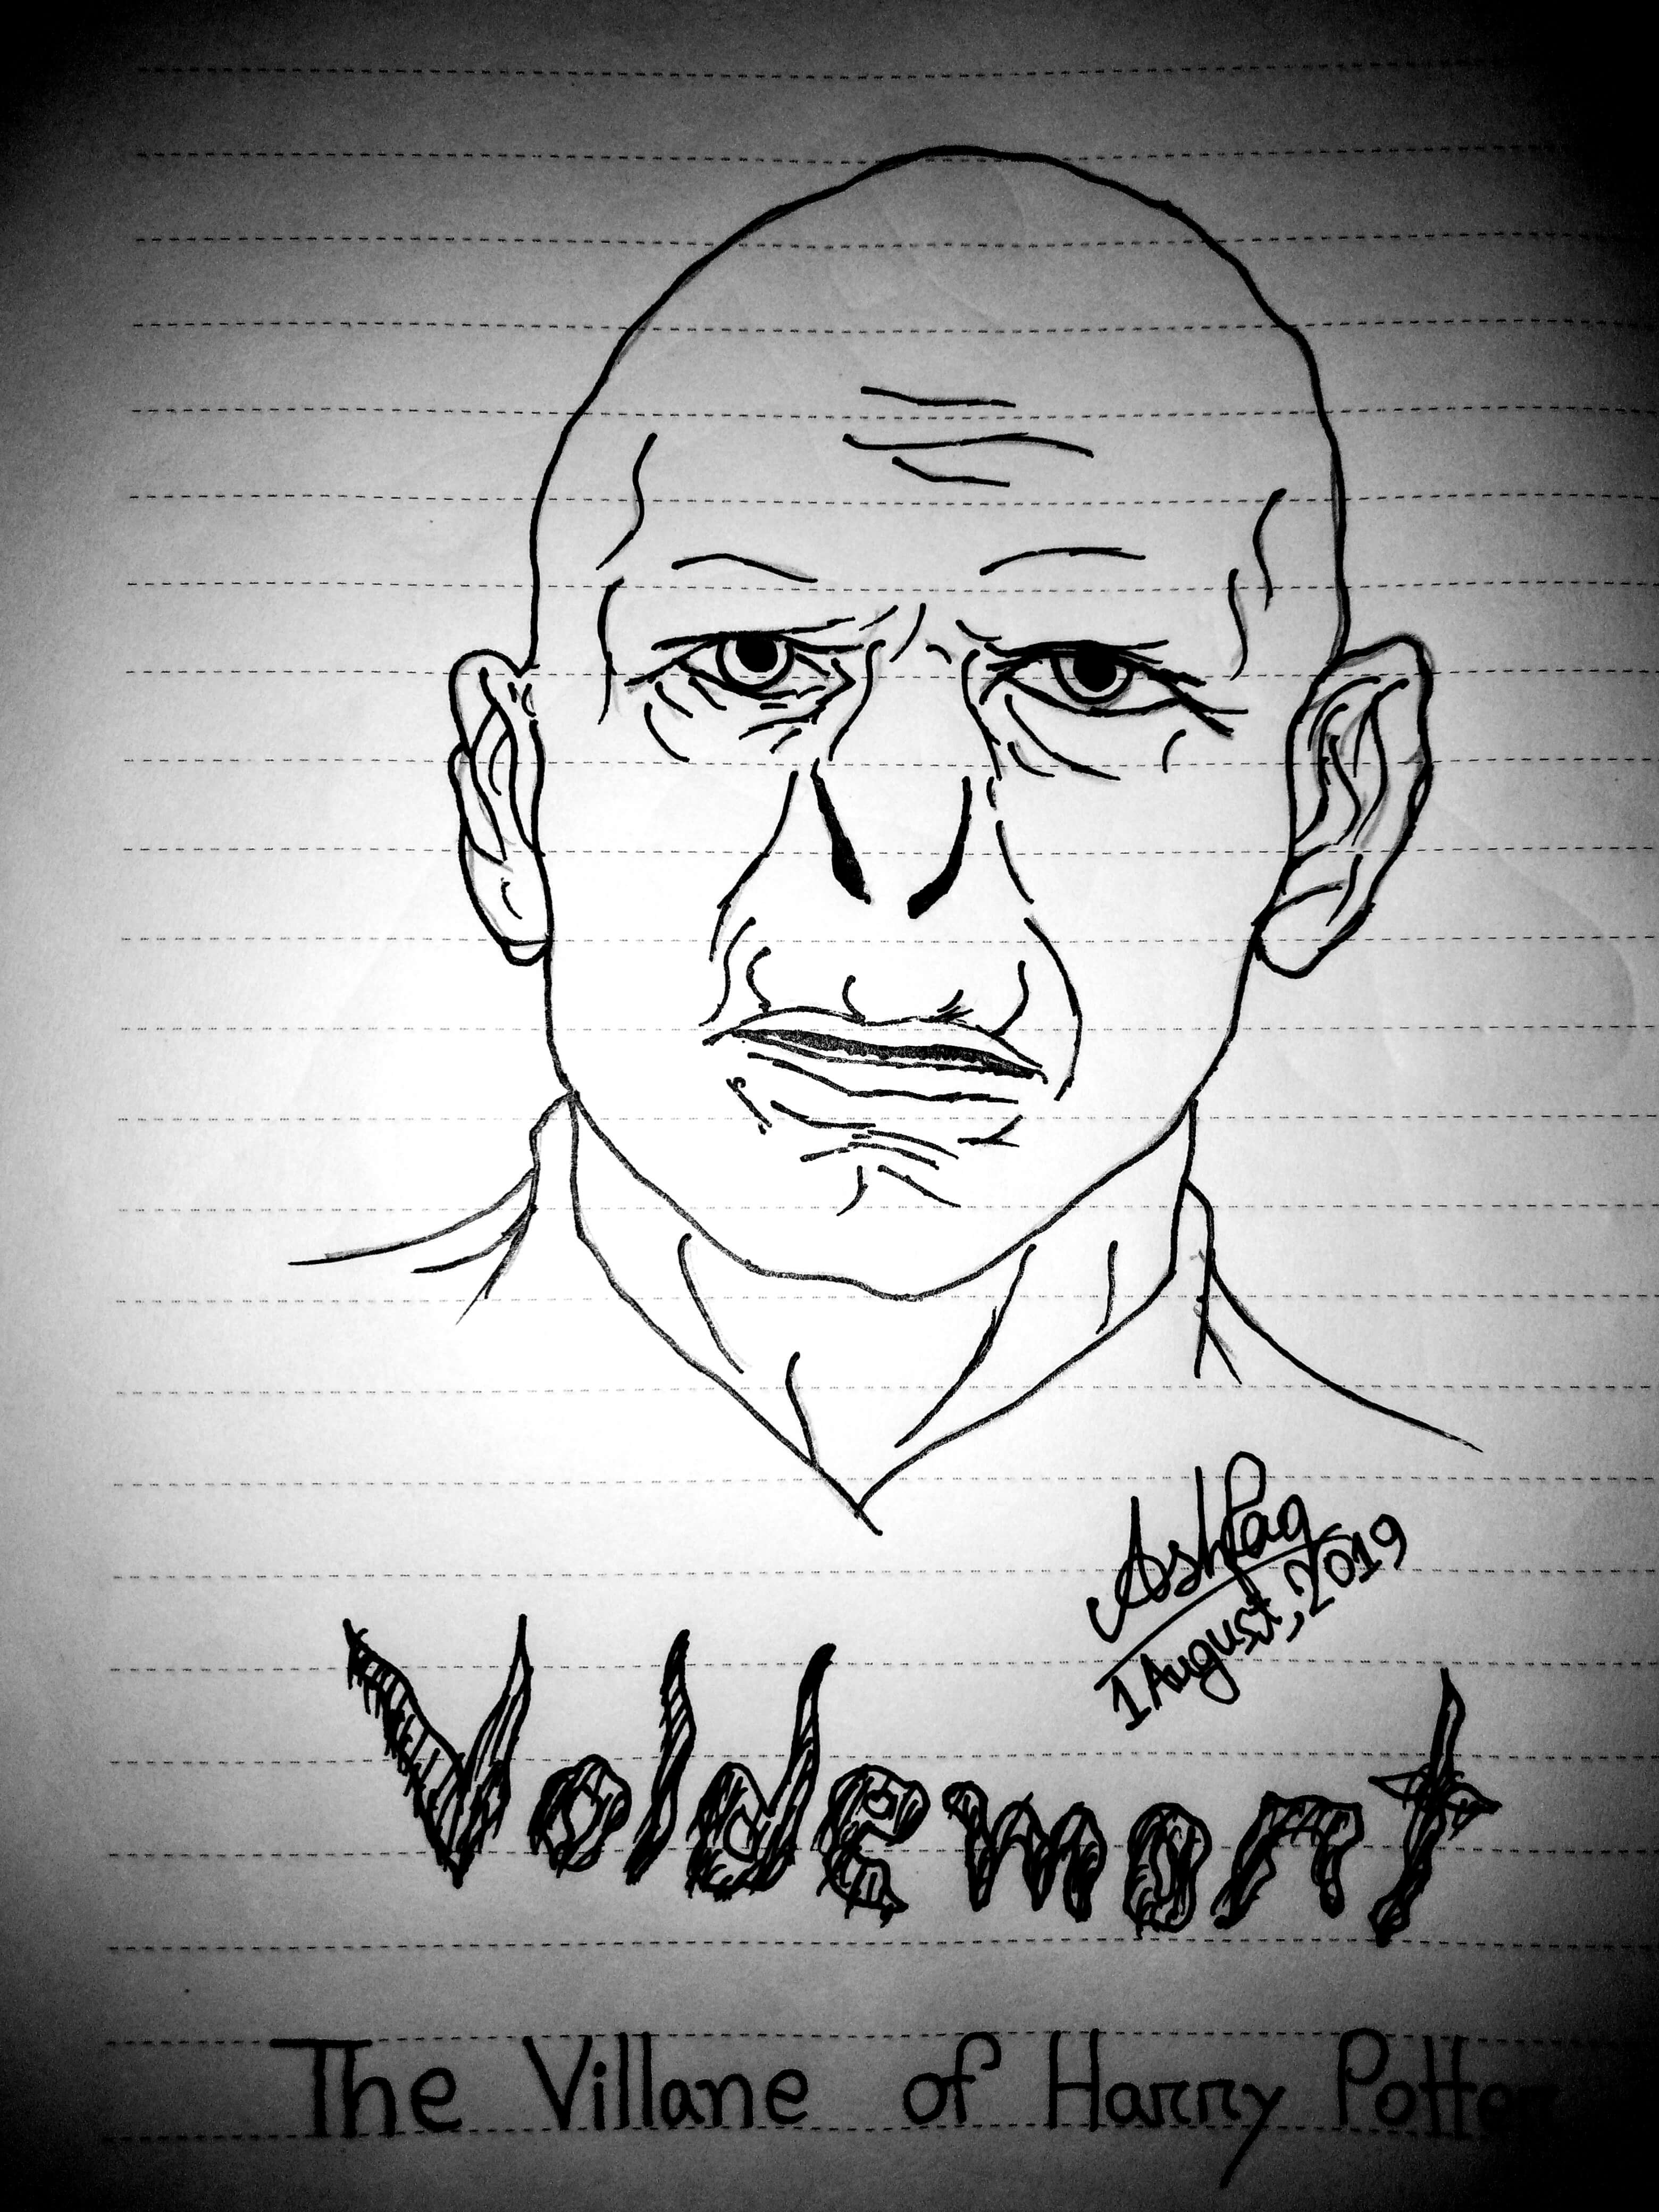 Ashfaq
1 August, 2019
Voldemort
The Villane of Harry Potter